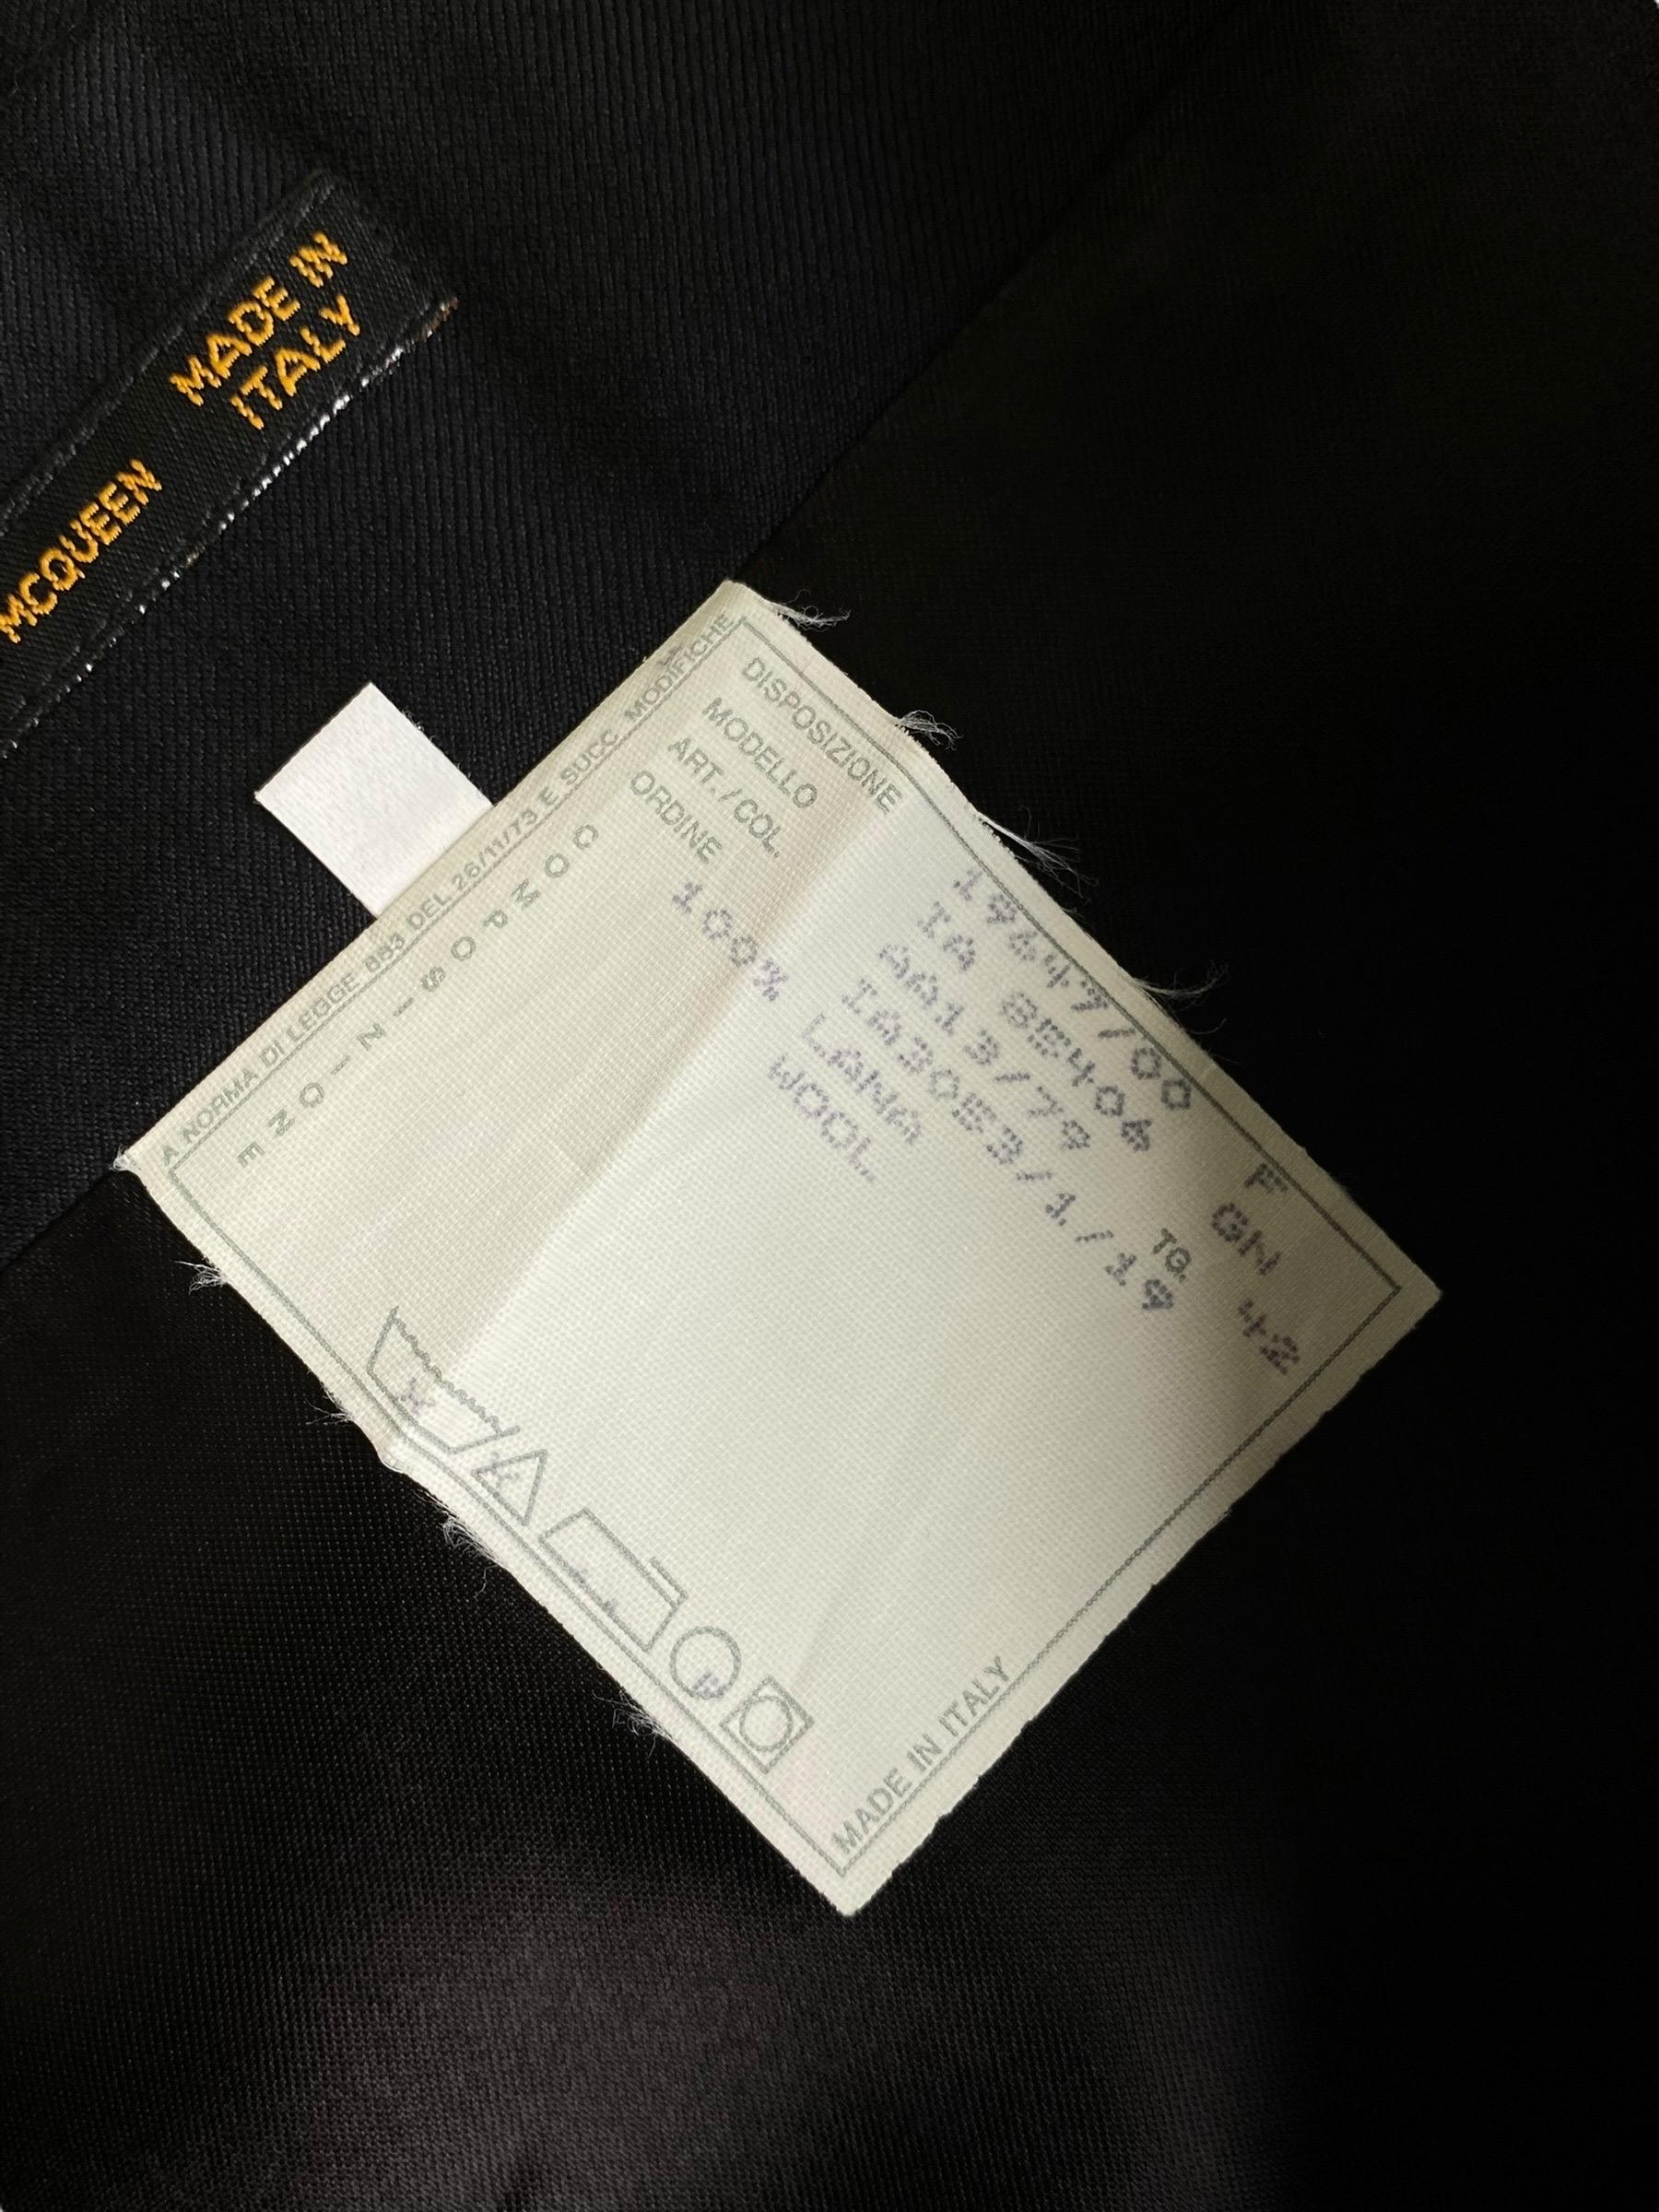 MCQUEEN
MADE IN
ITALY
A NORMA DI LEGGE 883 DEL 26/11/73 E SUCC. MODIFICHE
DISPOSIZIONE 19647/00 F
MODELLO IA 8E406 GN
ART./COL. AA13/79 TG. 42
ORDINE IA30E3/1/19
COMPOSIZIONE
100% LANA
WOOL
P
MADE IN ITALY